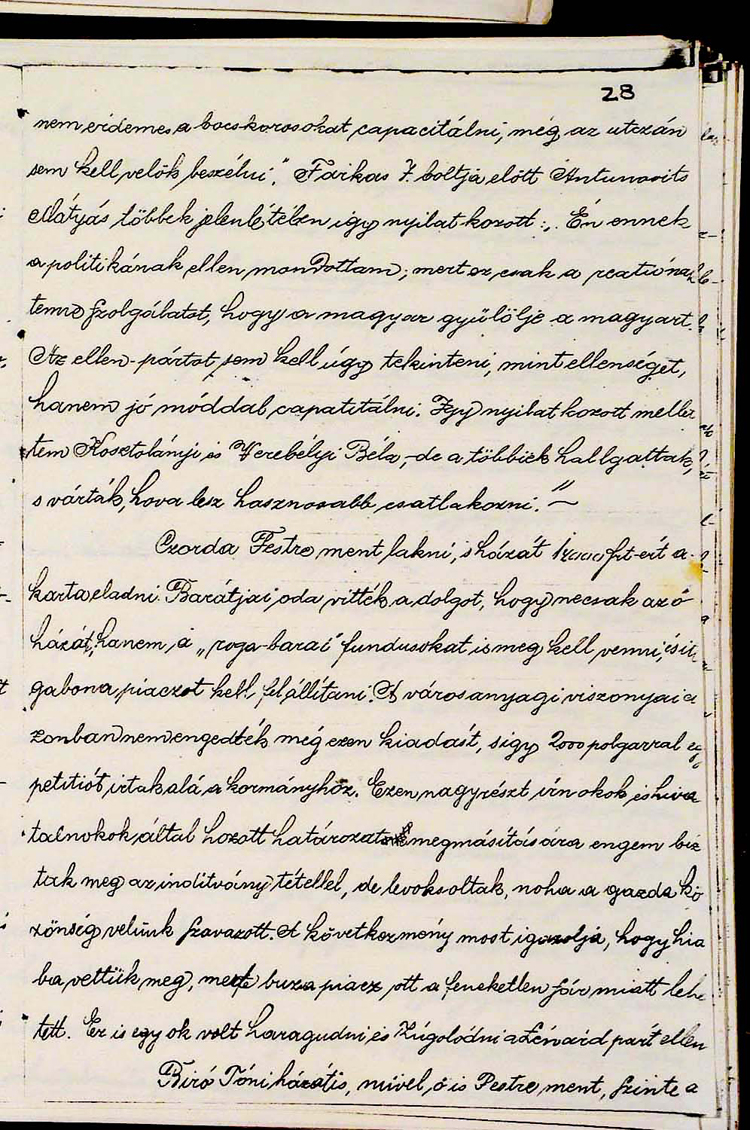 28
nem érdemes a bocskorosokat capacitálni, még az utczán
sem kell velök beszélni." Farkas I. boltja előtt Antunovits
Mátyás többek jelenlétében így nyilatkozott: „Én ennek
a politikának ellen mondottam; mert ez csak a reactiónak
tenne szolgálatot, hogy a magyar gyülölje a magyart.
Az ellen-pártot sem kell úgy tekinteni, mint ellenséget,
hanem jó móddal capatitálni. Igy nyilatkozott mellet
tem Kosztolányi és Verebélyi Béla, de a többiek hallgattak,
s várták, hova lesz hasznosabb csatlakozni."
Czorda Pestre ment lakni, s házát frt-ért a-
karta eladni. Barátjai oda vitték a dolgot, hogy necsak az ő
házát, hanem a „roga-barai" fundusokat is meg kell venni, és itt
gabona piaczot kell felállítani. A város anyagi viszonyai a
zonban nem engedték meg ezen kiadást, s így 2000 polgárral egy
petitiót irtak alá a kormányhoz. Ezen, nagyrészt irnokok és hiva
talnokok által hozott határozat megmásítására engem biz
tak meg az inditvány tétellel, de levoksoltak, noha a gazda kö
zönség velünk szavazott. A következmény most igazolja, hogy hia
ba vettük meg, mert buza piacz ott a feneketlen sár miatt lehe
tett. Ez is egy ok volt haragudni és zúgolódni a Lénárd párt ellen
Biró Tóniházát is, mivel ő is Pestre ment, szinte a